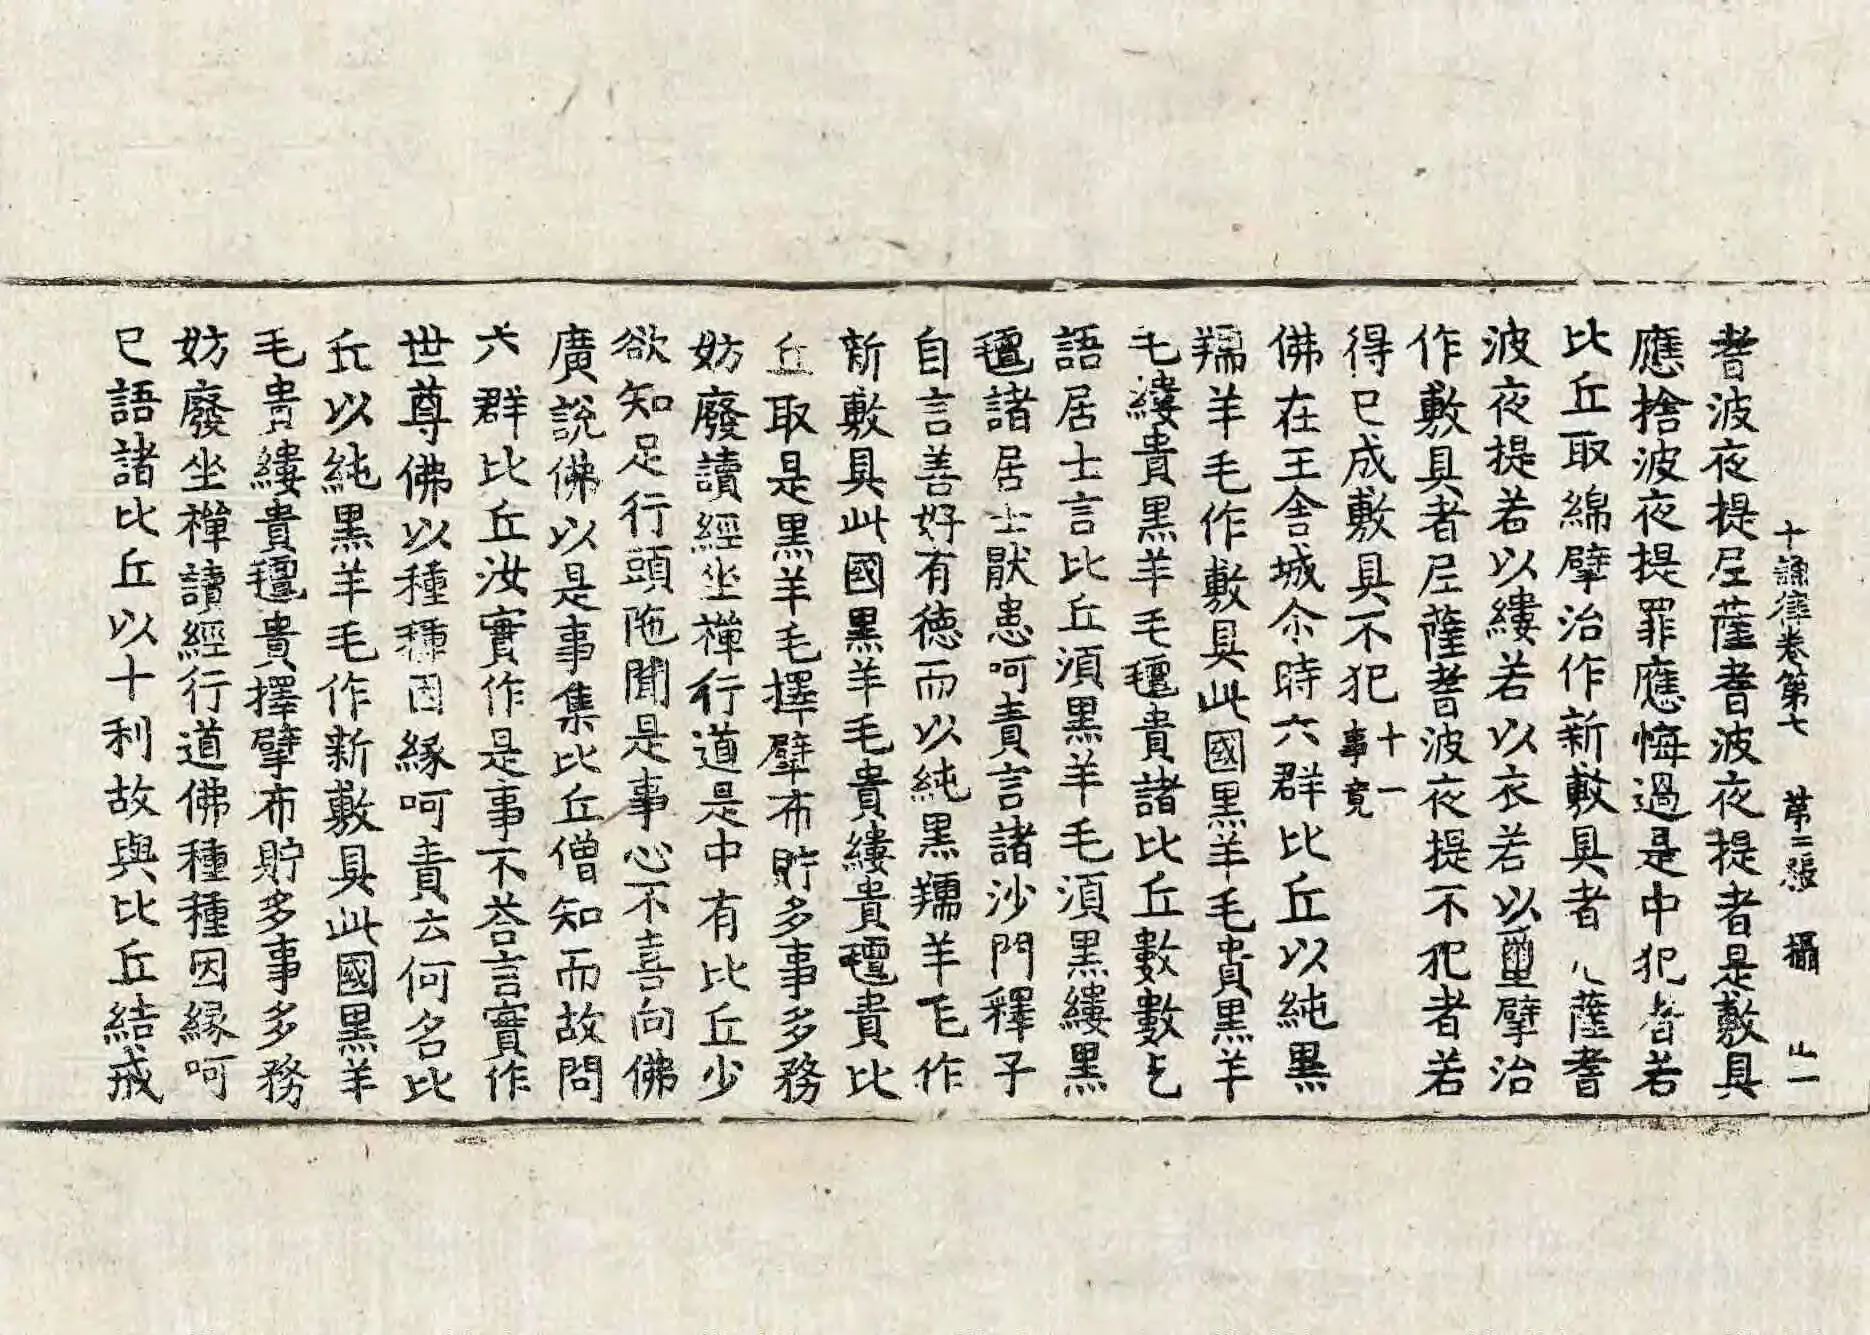 十誦律卷第七 第二張 攝
耆波夜提尼薩耆波夜提者是敷具
應捨波夜提罪應悔過是中犯者若
比丘取綿擘治作新敷具者尼薩耆
波夜提若以縷若以衣若以壐擘治
作敷具者尼薩耆波夜提不犯者若
得已成敷具不犯十一事竟
佛在王舍城尒時六群比丘以純黑
羺羊毛作敷具此國黑羊毛貴黑羊
毛縷貴黑羊毛氀貴諸比丘數數乞
語居士言比丘湏黑羊毛湏黑縷黑
氀諸居士猒患呵責言諸沙門釋子
自言善好有德而以純黑羺羊毛作
新敷具此國黑羊毛貴縷貴氀貴比
丘取是黑羊毛擇擘布貯多事多務
妨廢讀經坐禪行道是中有比丘少
欲知足行頭陁聞是事心不喜向佛
廣說佛以是事集比丘僧知而故問
六群比丘汝實作是事不荅言實作
世尊佛以種種因緣呵責云何名比
丘以純黑羊毛作新敷具此國黑羊
毛貴縷貴氀貴擇擘布貯多事多務
妨廢坐禪讀經行道佛種種因緣呵
已語諸比丘以十利故與比丘結戒